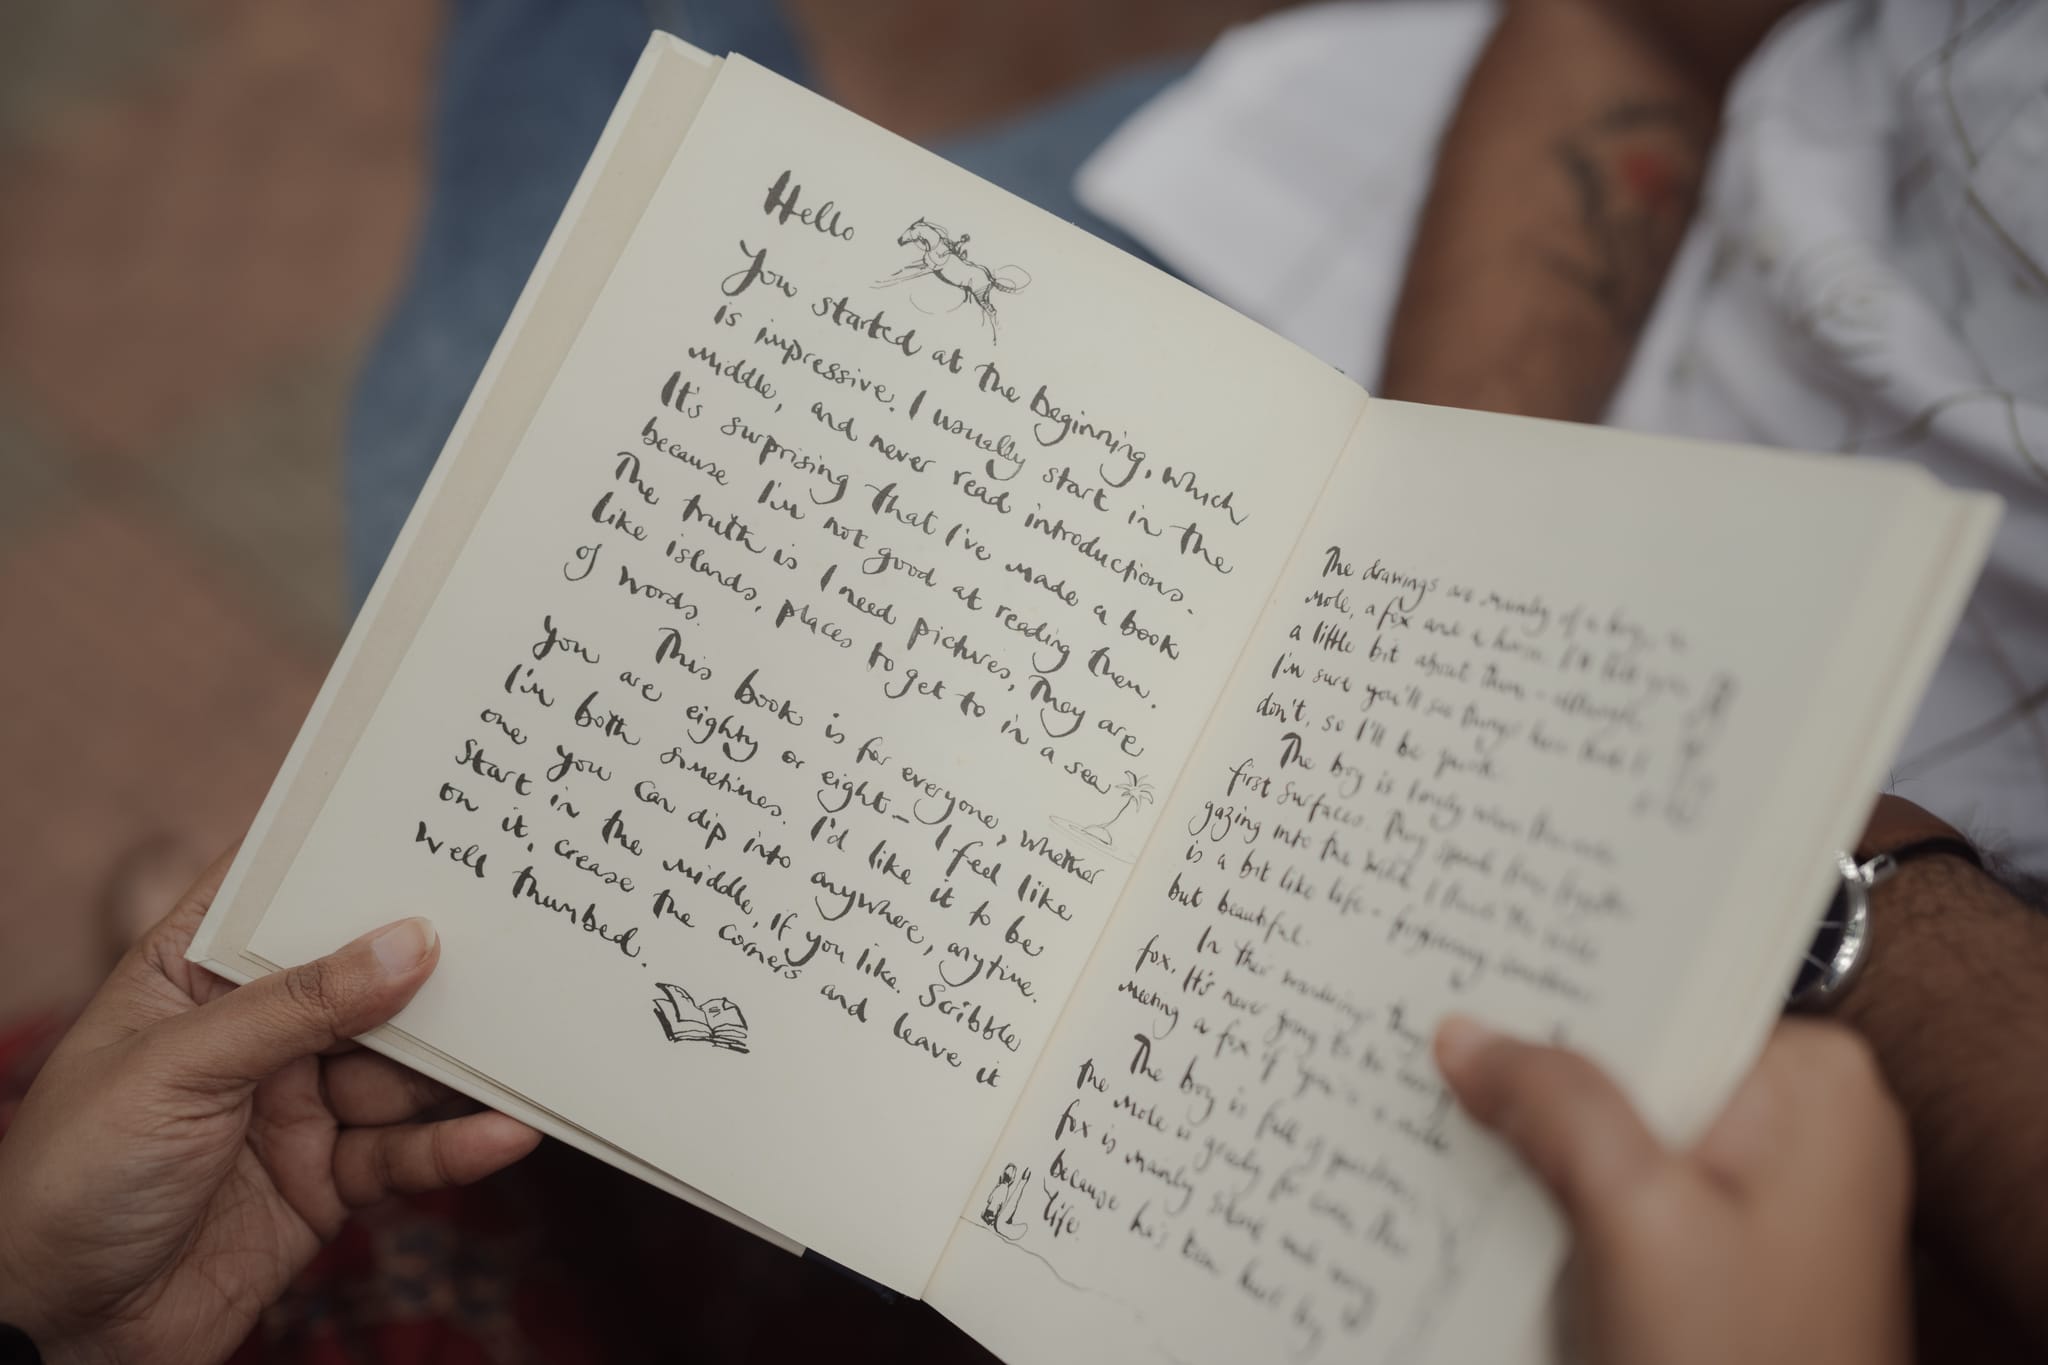 Hello
You started at the beginning, which
is impressive. I usually start in the
middle, and never read introductions.
It's surprising that I've made a book
because I'm not good at reading them.
The truth is I need pictures, they are
like islands, places to get to in a sea
of words.
This book is for everyone, whether
you are eighty or eight – I feel like
I'm both sometimes. I'd like it to be
one you can dip into anywhere, anytime.
Start in the middle, if you like. Scribble
on it, crease the corners and leave it
well thumbed.
The drawings are mainly of a boy, a
mole, a fox and a horse. I'll tell you
a little bit about them – although
I'm sure you'll see things in them that I
don't, so I'll be quick.
The boy is lonely when the mole
first surfaces. They spend time together
gazing into the wild. I think the wild
is a bit like life – frightening sometimes
but beautiful.
In their wanderings they
fox. It's never going to be easy
meeting a fox if you're a mole.
The boy is full of questions,
the mole is greedy for cake. The
fox is mainly silent and wary
because he's been hurt by
life.